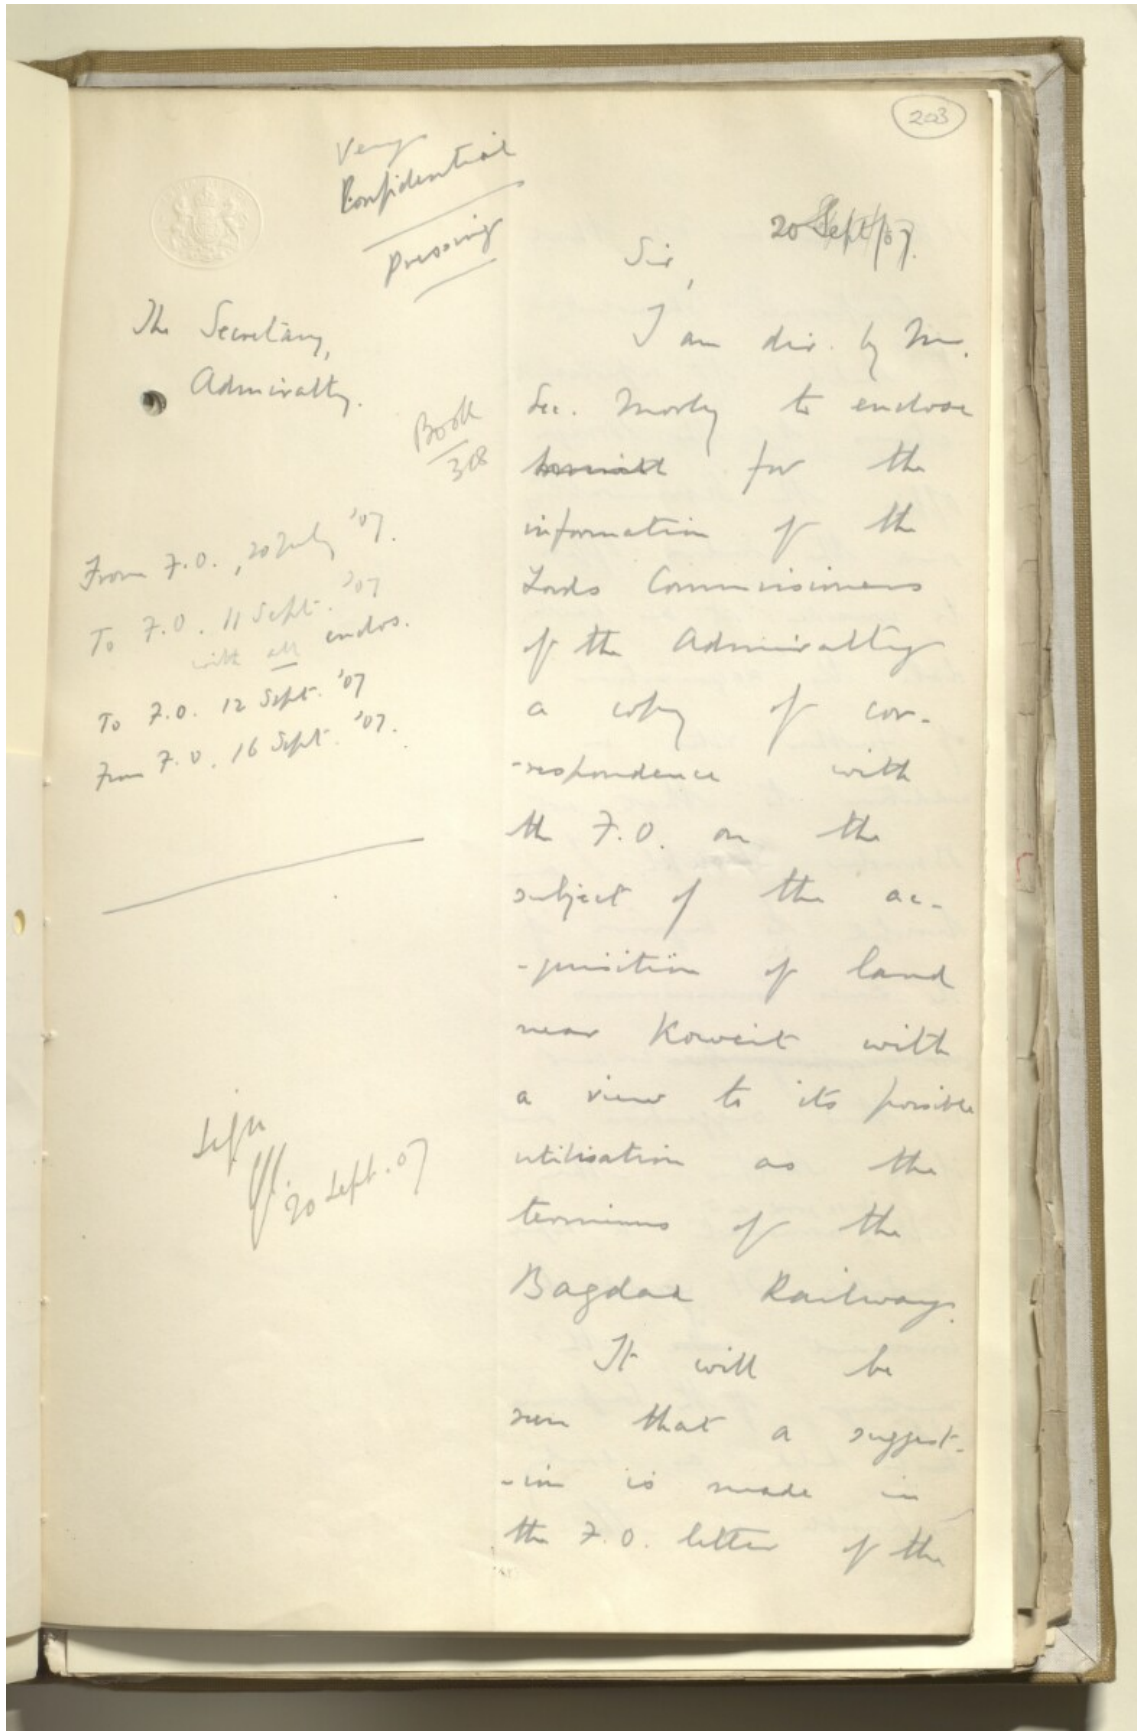 203
Very
Confidential
Pressing
20 Sept/07.
The Secretary,
Admiralty.
Book
308
From F.O., 20 July '07.
To F.O. 11 Sept. '07
with all enclos.
To F.O. 12 Sept. '07
From F.O. 16 Sept. '07.
20 Sept. 07
Sir,
I am dir. by Mr.
Sec. Morley to enclose
for the
information of the
Lords Commissioners
of the Admiralty
a copy of cor-
-respondence with
the F.O. on the
subject of the ac-
-quisition of land
near Koweit with
a view to its possible
utilisation as the
terminus of the
Bagdad Railway.
It will be
seen that a suggest-
-ion is made in
the F.O. letter of the